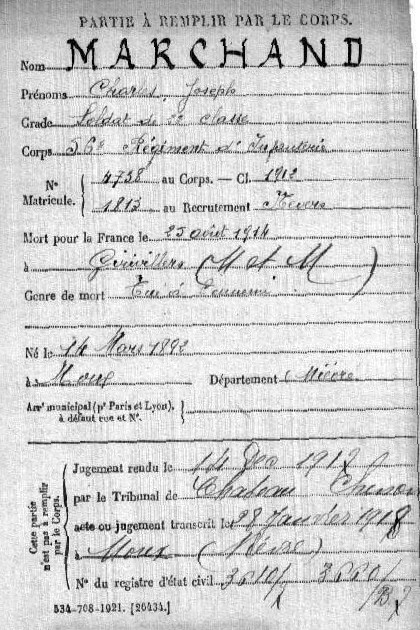 PARTIE À REMPLIR PAR LE CORPS.
Nom MARCHAND
Prénoms Charles Joseph
Grade Soldat de 2e classe
Corps 56e Régiment d'Infanterie
N° Matricule. { 4738 au Corps. — Cl. 1912
1813 au Recrutement Nevers
Mort pour la France le 25 août 1914
à Girivillers (M et M)
Genre de mort Tué à l'ennemi
Né le 14 Mars 1892
à Moux Département Nièvre
Arr^t municipal (p^r Paris et Lyon), à défaut rue et N°. }
Cette partie n'est pas à remplir par le Corps.
Jugement rendu le 14 Dec 1917
par le Tribunal de Chateau Chinon
acte ou jugement transcrit le 28 Janvier 1918
à Moux (Nièvre)
N° du registre d'état civil
534-708-1921. [26434.]